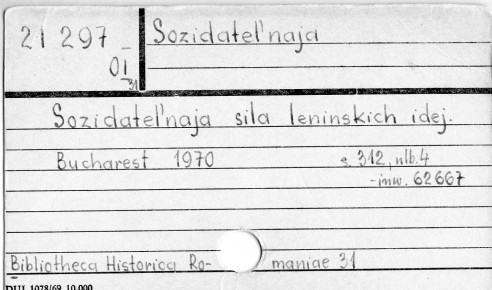 21 297 – Sozidatel'naja
01
31
Sozidatel'naja sila leninskich idej.
Bucharest 1970 s. 312, nlb. 4
-inw. 62667
Bibliotheca Historica Ro- maniae 31
DUJ 1078/69 10.000